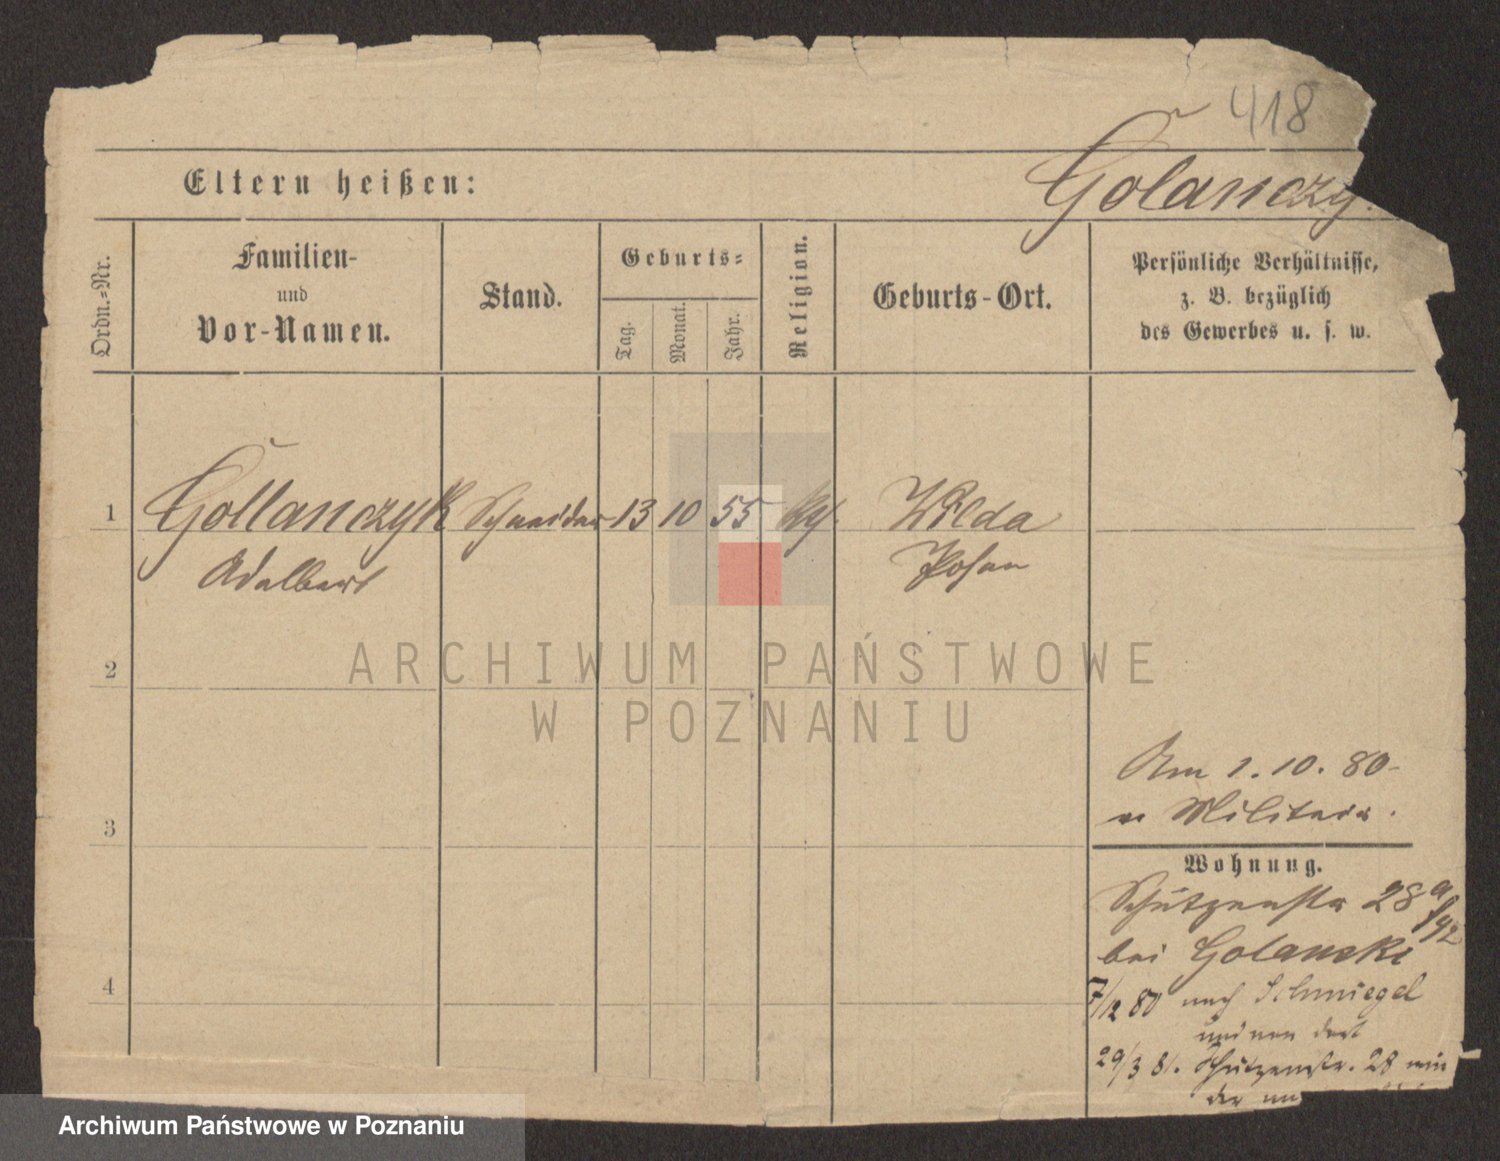 418
Eltern heißen:
Golanczy
Ordn.-Nr.
Familien-
und
Vor-Namen.
Stand.
Geburts-
Tag.
Monat.
Jahr.
Religion.
Geburts-Ort.
Persönliche Verhältnisse,
z. B. bezüglich
des Gewerbes u. s. w.
1
Gollanczyk Schneider 13 10 55 Wilda
Adalbert Posen
2
ARCHIWUM PAŃSTWOWE
W POZNANIU
Am 1. 10. 80
Militair.
3
Wohnung.
Schützenstr 28 a
bei Golanski
4
7/12 80 nach Schmiegel
dort
29/3 81. Schützenstr. 28
der
Archiwum Państwowe w Poznaniu